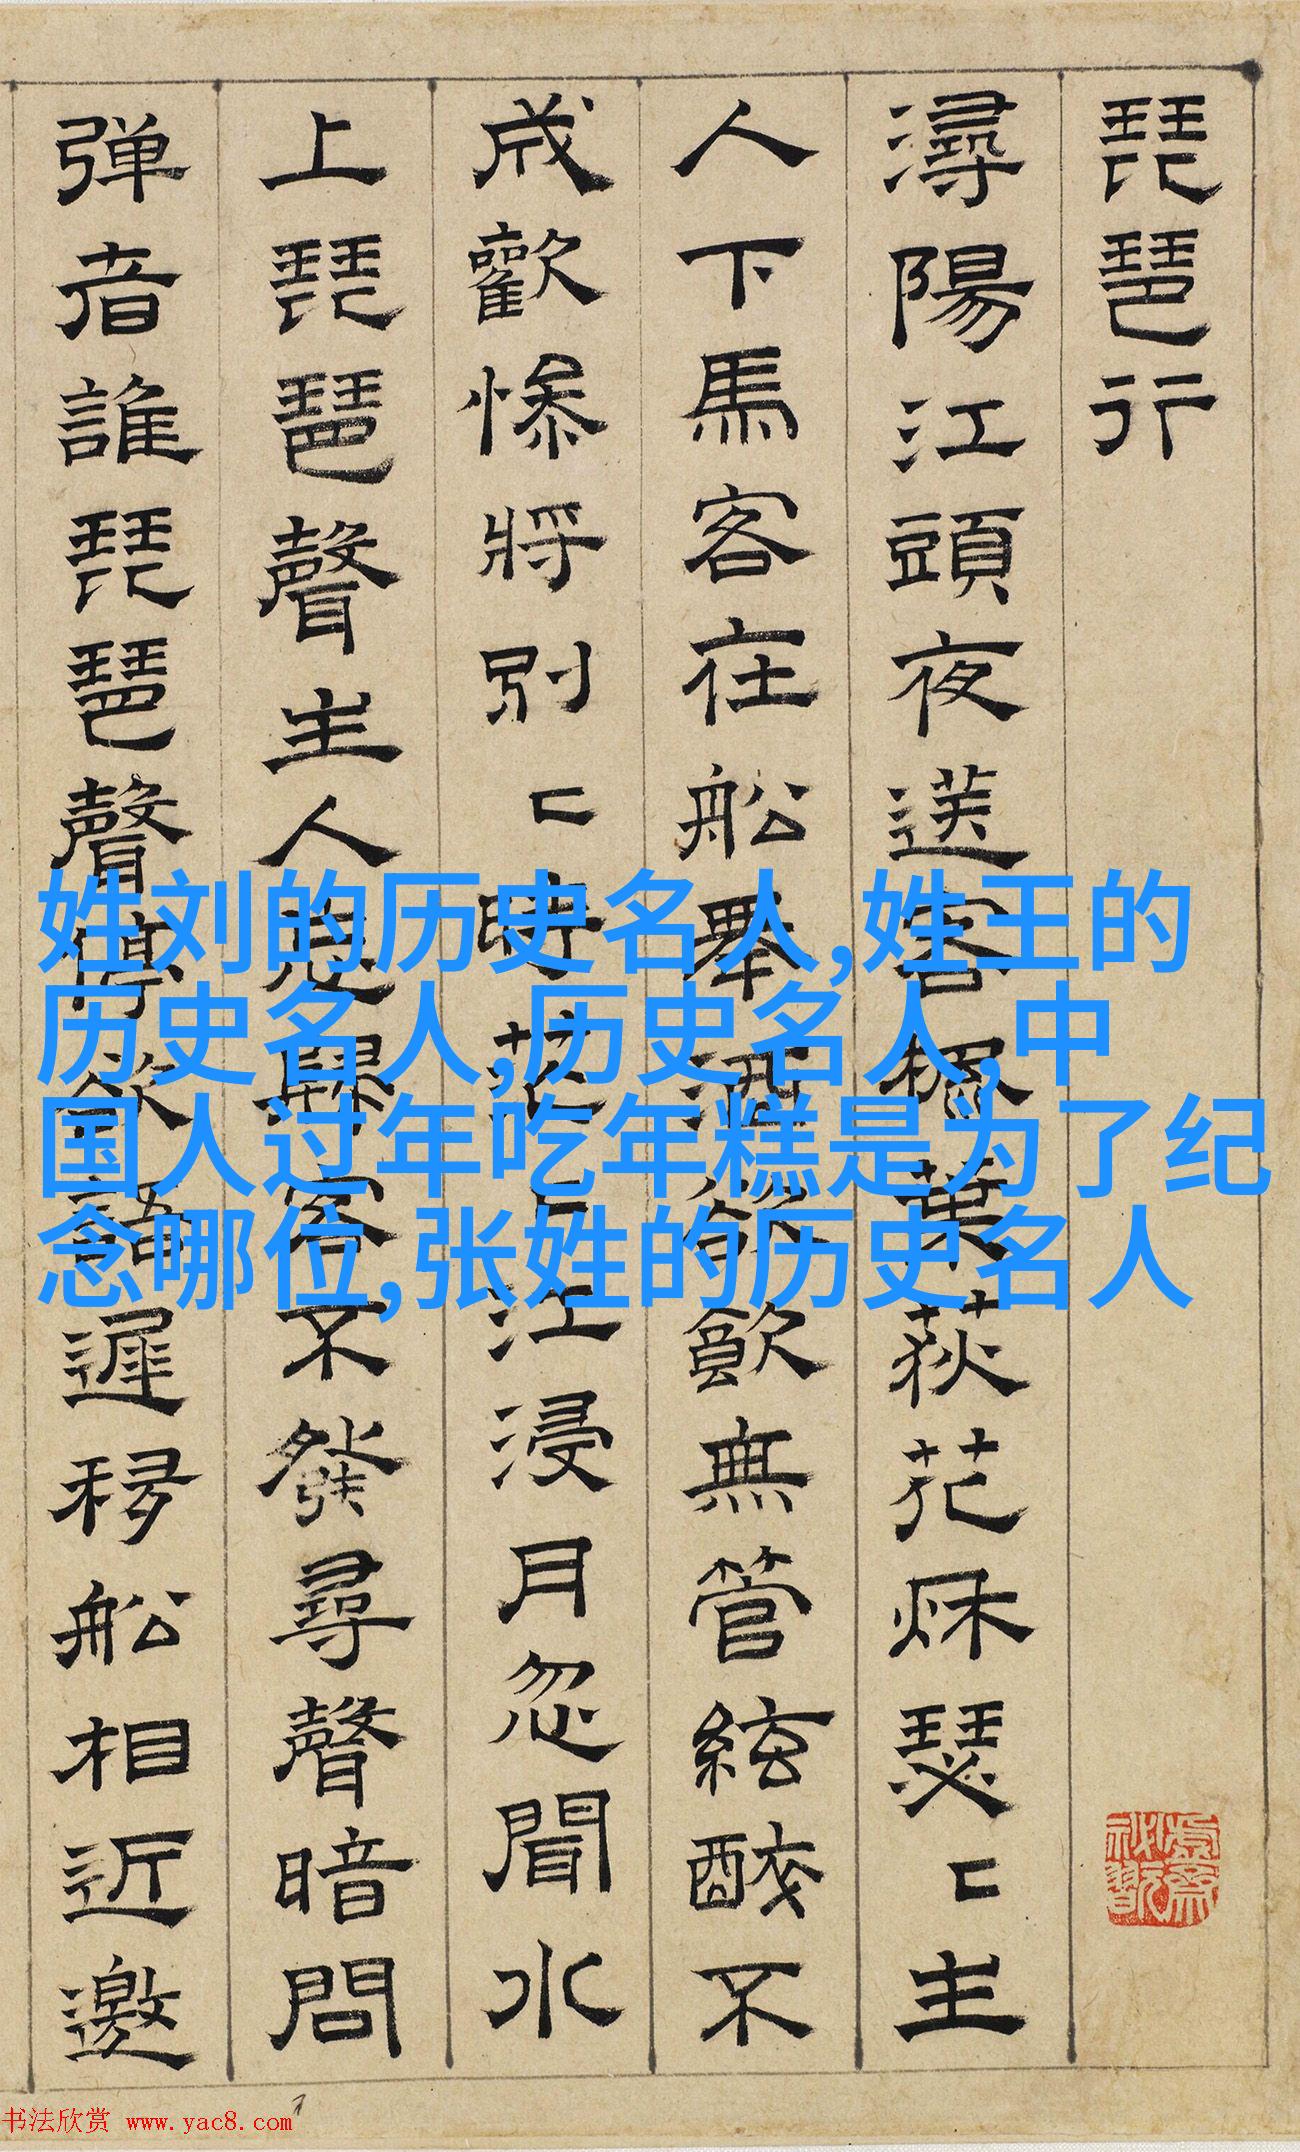 琵琶行
潯陽江頭夜送客楓葉荻花秋瑟〻主
人下馬客在船舉酒欲飲無管絃醉不
成歡慘將別〻時茫〻江浸月忽聞水
上琵琶聲主人忘歸客不發尋聲暗問
弹者誰琵琶聲停欲語遲移船相近邀
姓刘的历史名人,姓王的
历史名人,历史名人,中
国人过年吃年糕是为了纪
念哪位,张姓的历史名人
书法欣赏 www.yac8.com